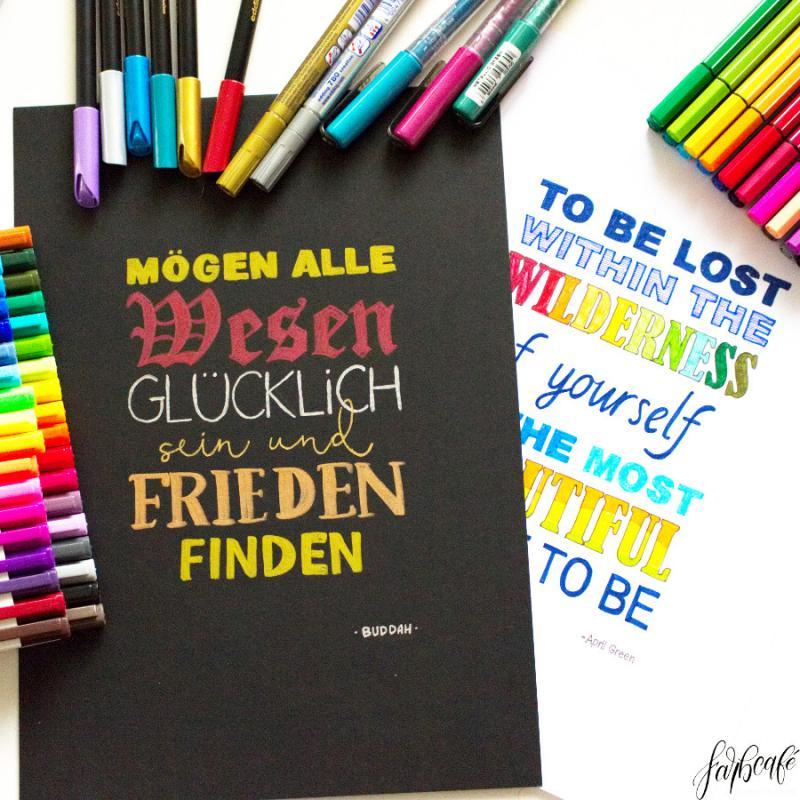 MÖGEN ALLE
Wesen
GLÜCKLiCH
sein und
FRIEDEN
FINDEN
·BUDDAH·
TO BE LOST
WITHIN THE
WILDERNESS
f yourself
HE MOST
UTIFUL
TO BE
-April Green
farbcafé